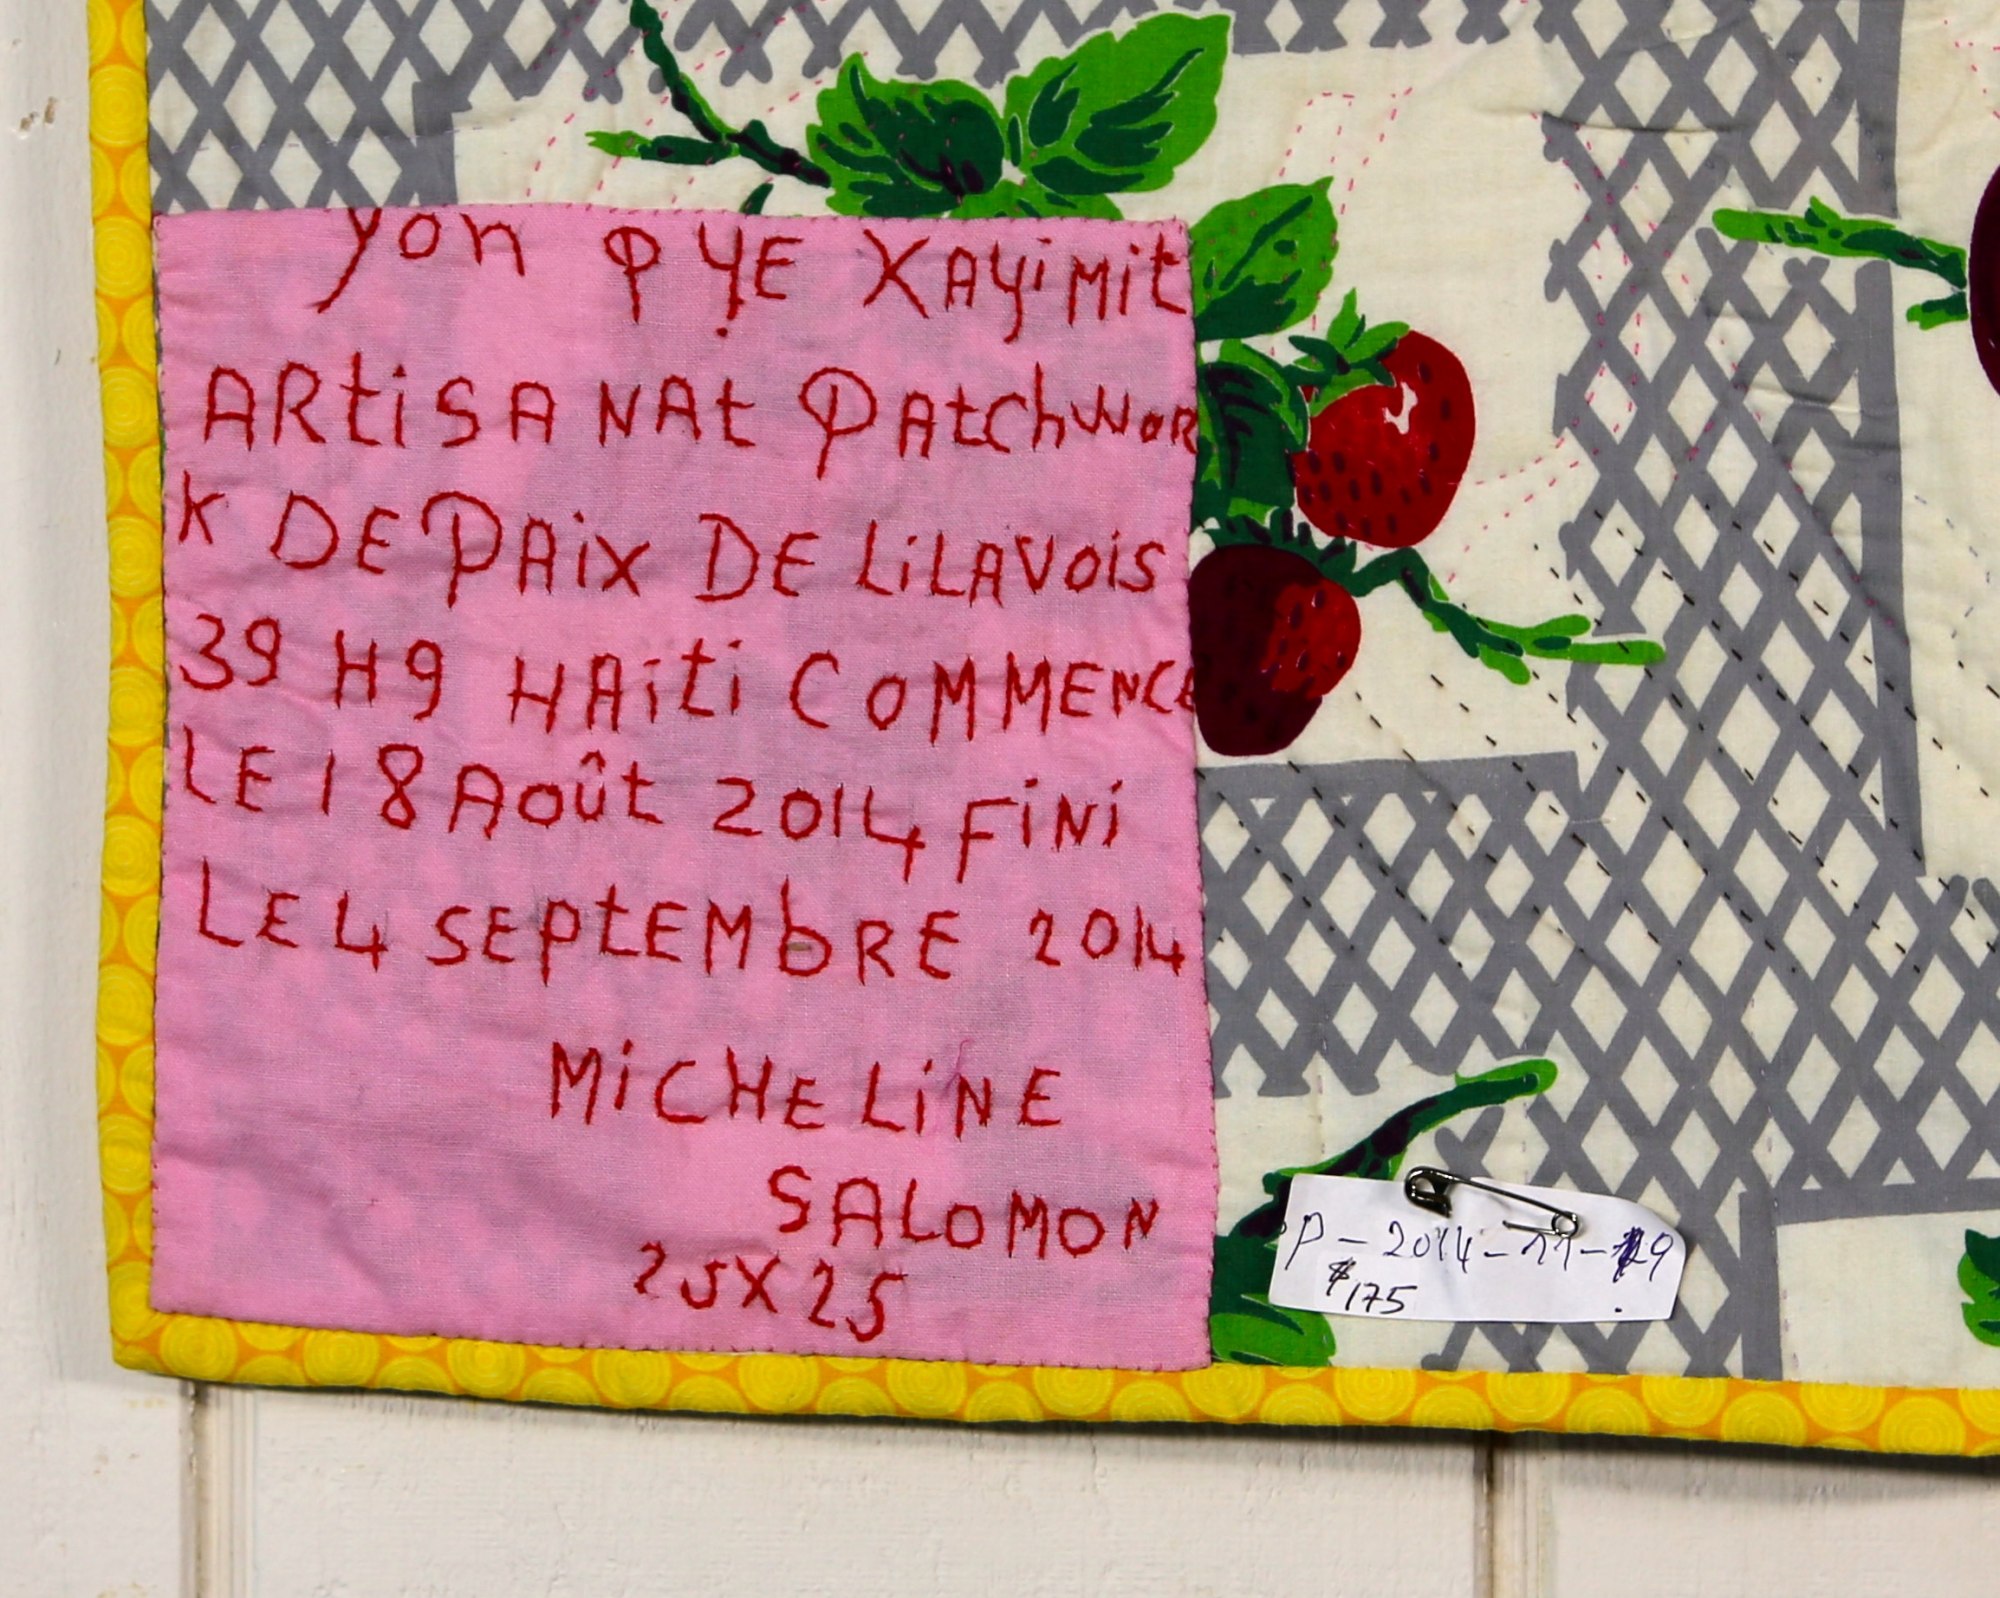 yon PYE KAYiMit
ARtiSANAt PAtchWoR
K DE PAix DE LiLAVois
39 H9 HAiti COMMENCE
LE 18 Août 2014 FiNi
LE 4 SEPtEMbRE 2014
MiCHELiNE
SALOMON
25X25
PP-2014-11-9
$175